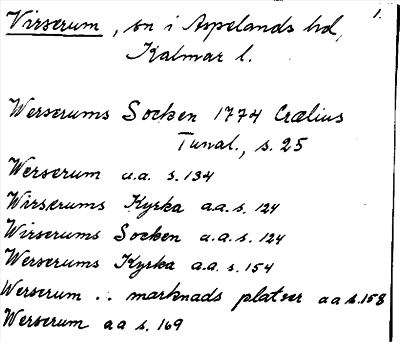 1.
Virserum, sn i Aspelands hd,
Kalmar l.
Werserums Socken 1774 Crælius
Tunal., s. 25
Werserum a.a. s. 134
Wirserums Kyrka a.a. s. 124
Wirserums Socken a.a. s. 124
Werserums Kyrka a.a. s. 154
Werserum .. marknads platser a a s. 158
Werserum a a s. 169